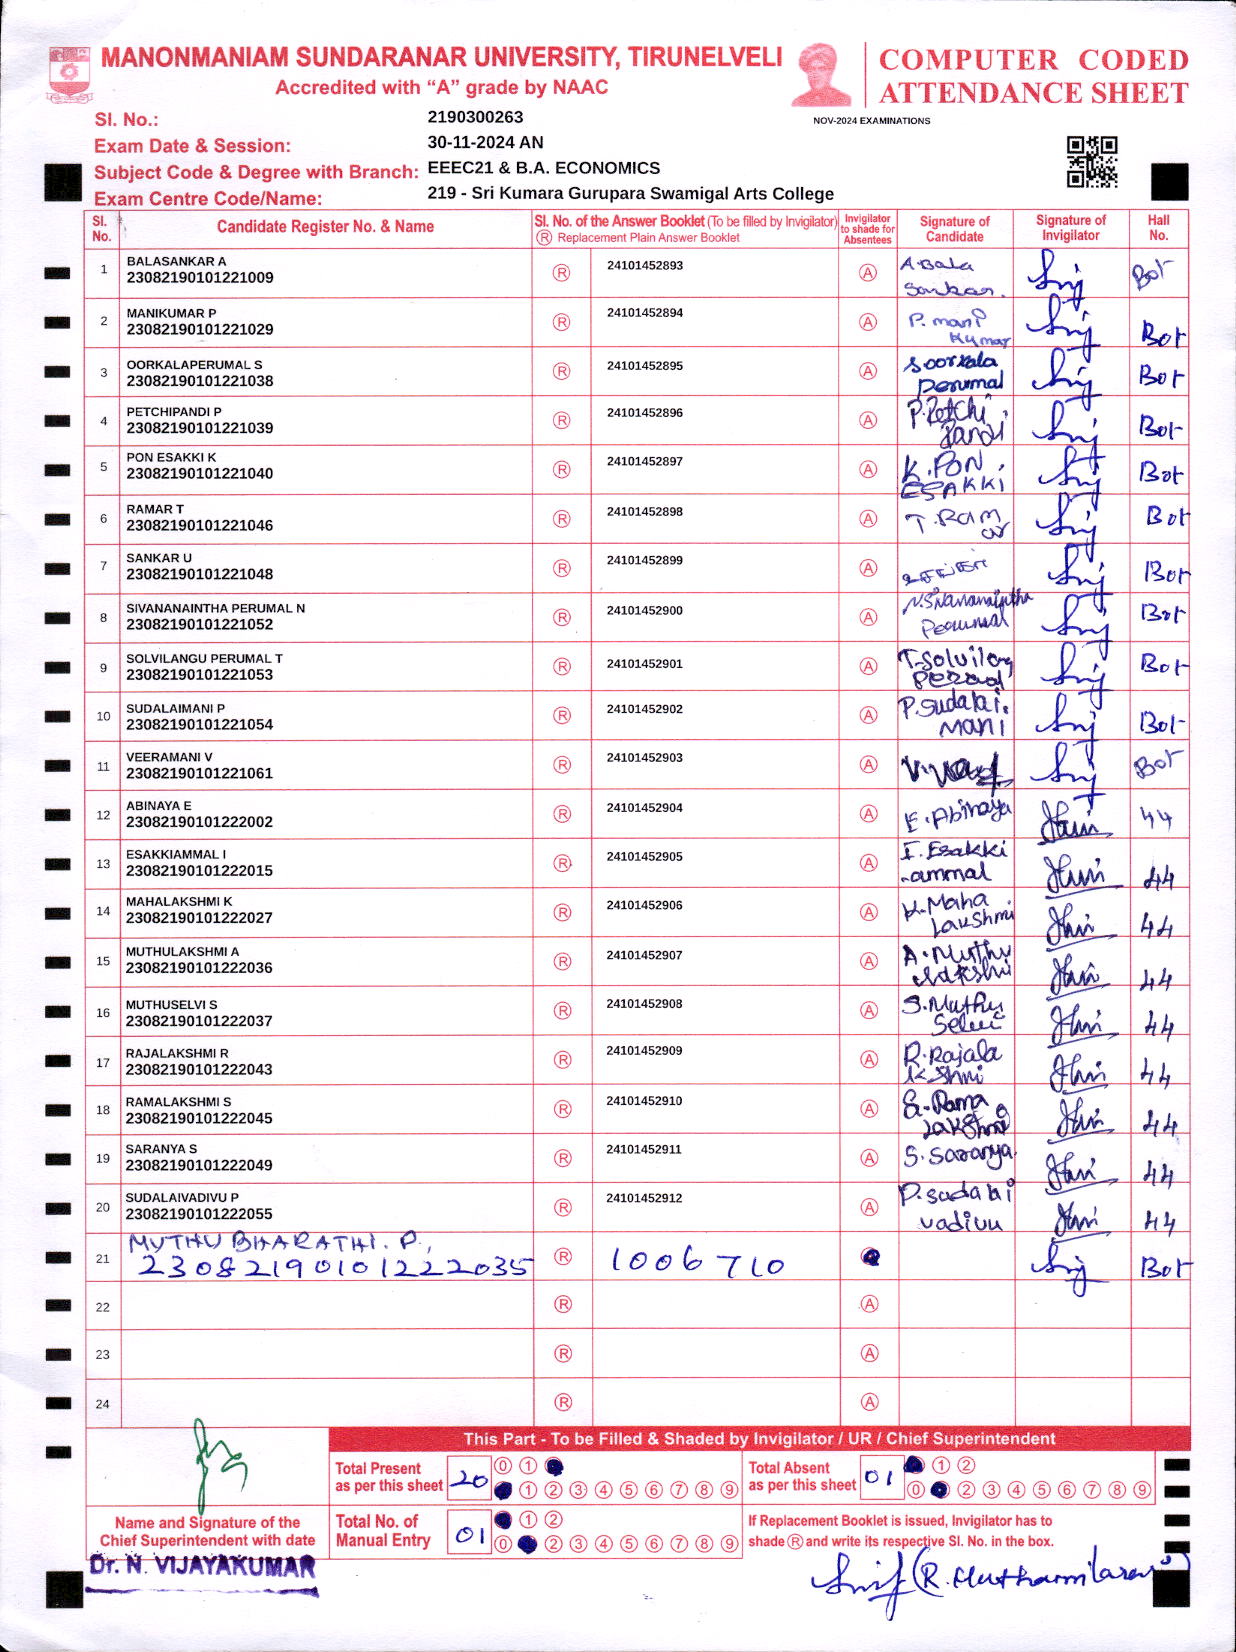 MANONMANIAM SUNDARANAR UNIVERSITY, TIRUNELVELI
Accredited with “A” grade by NAAC
COMPUTER CODED
ATTENDANCE SHEET
NOV-2024 EXAMINATIONS
Sl. No.: 2190300263
Exam Date & Session: 30-11-2024 AN
Subject Code & Degree with Branch: EEEC21 & B.A. ECONOMICS
Exam Centre Code/Name: 219 - Sri Kumara Gurupara Swamigal Arts College
Sl. No. Candidate Register No. & Name Sl. No. of the Answer Booklet (To be filled by Invigilator) Ⓡ Replacement Plain Answer Booklet Invigilator to shade for Absentees Signature of Candidate Signature of Invigilator Hall No.
1 BALASANKAR A 23082190101221009 Ⓡ 24101452893 Ⓐ A.Bala Sankar. Bot
2 MANIKUMAR P 23082190101221029 Ⓡ 24101452894 Ⓐ P. mani Kumar Bot
3 OORKALAPERUMAL S 23082190101221038 Ⓡ 24101452895 Ⓐ S oorkala Perumal Bot
4 PETCHIPANDI P 23082190101221039 Ⓡ 24101452896 Ⓐ P.Petchi Pandi Bot
5 PON ESAKKI K 23082190101221040 Ⓡ 24101452897 Ⓐ K.PON ESAKKI Bot
6 RAMAR T 23082190101221046 Ⓡ 24101452898 Ⓐ T.Ram ar Bot
7 SANKAR U 23082190101221048 Ⓡ 24101452899 Ⓐ Bot
8 SIVANANAINTHA PERUMAL N 23082190101221052 Ⓡ 24101452900 Ⓐ N.Sivananaintha Perumal Bot
9 SOLVILANGU PERUMAL T 23082190101221053 Ⓡ 24101452901 Ⓐ T.Solvilang Bot
10 SUDALAIMANI P 23082190101221054 Ⓡ 24101452902 Ⓐ P.Sudalai. Mani Bot
11 VEERAMANI V 23082190101221061 Ⓡ 24101452903 Ⓐ Bot
12 ABINAYA E 23082190101222002 Ⓡ 24101452904 Ⓐ E.Abinaya 44
13 ESAKKIAMMAL I 23082190101222015 Ⓡ 24101452905 Ⓐ I.Esakki ammal 44
14 MAHALAKSHMI K 23082190101222027 Ⓡ 24101452906 Ⓐ K.Maha Lakshmi 44
15 MUTHULAKSHMI A 23082190101222036 Ⓡ 24101452907 Ⓐ A.Muthu lakshmi 44
16 MUTHUSELVI S 23082190101222037 Ⓡ 24101452908 Ⓐ S.Muthu Selvi 44
17 RAJALAKSHMI R 23082190101222043 Ⓡ 24101452909 Ⓐ R.Rajala kshmi 44
18 RAMALAKSHMI S 23082190101222045 Ⓡ 24101452910 Ⓐ S.Rama lakshmi 44
19 SARANYA S 23082190101222049 Ⓡ 24101452911 Ⓐ S.Saranya 44
20 SUDALAIVADIVU P 23082190101222055 Ⓡ 24101452912 Ⓐ P.sudalai vadivu 44
21 MUTHU BHARATHI. P, 23082190101222035 Ⓡ 1006710 Bot
22 Ⓡ Ⓐ
23 Ⓡ Ⓐ
24 Ⓡ Ⓐ
This Part - To be Filled & Shaded by Invigilator / UR / Chief Superintendent
Total Present as per this sheet 20 0 1
1 2 3 4 5 6 7 8 9
Total Absent as per this sheet 01 1 2
0 2 3 4 5 6 7 8 9
Total No. of Manual Entry 01 1 2
0 2 3 4 5 6 7 8 9
If Replacement Booklet is issued, Invigilator has to
shade Ⓡ and write its respective Sl. No. in the box.
Name and Signature of the
Chief Superintendent with date
Dr. N. VIJAYAKUMAR